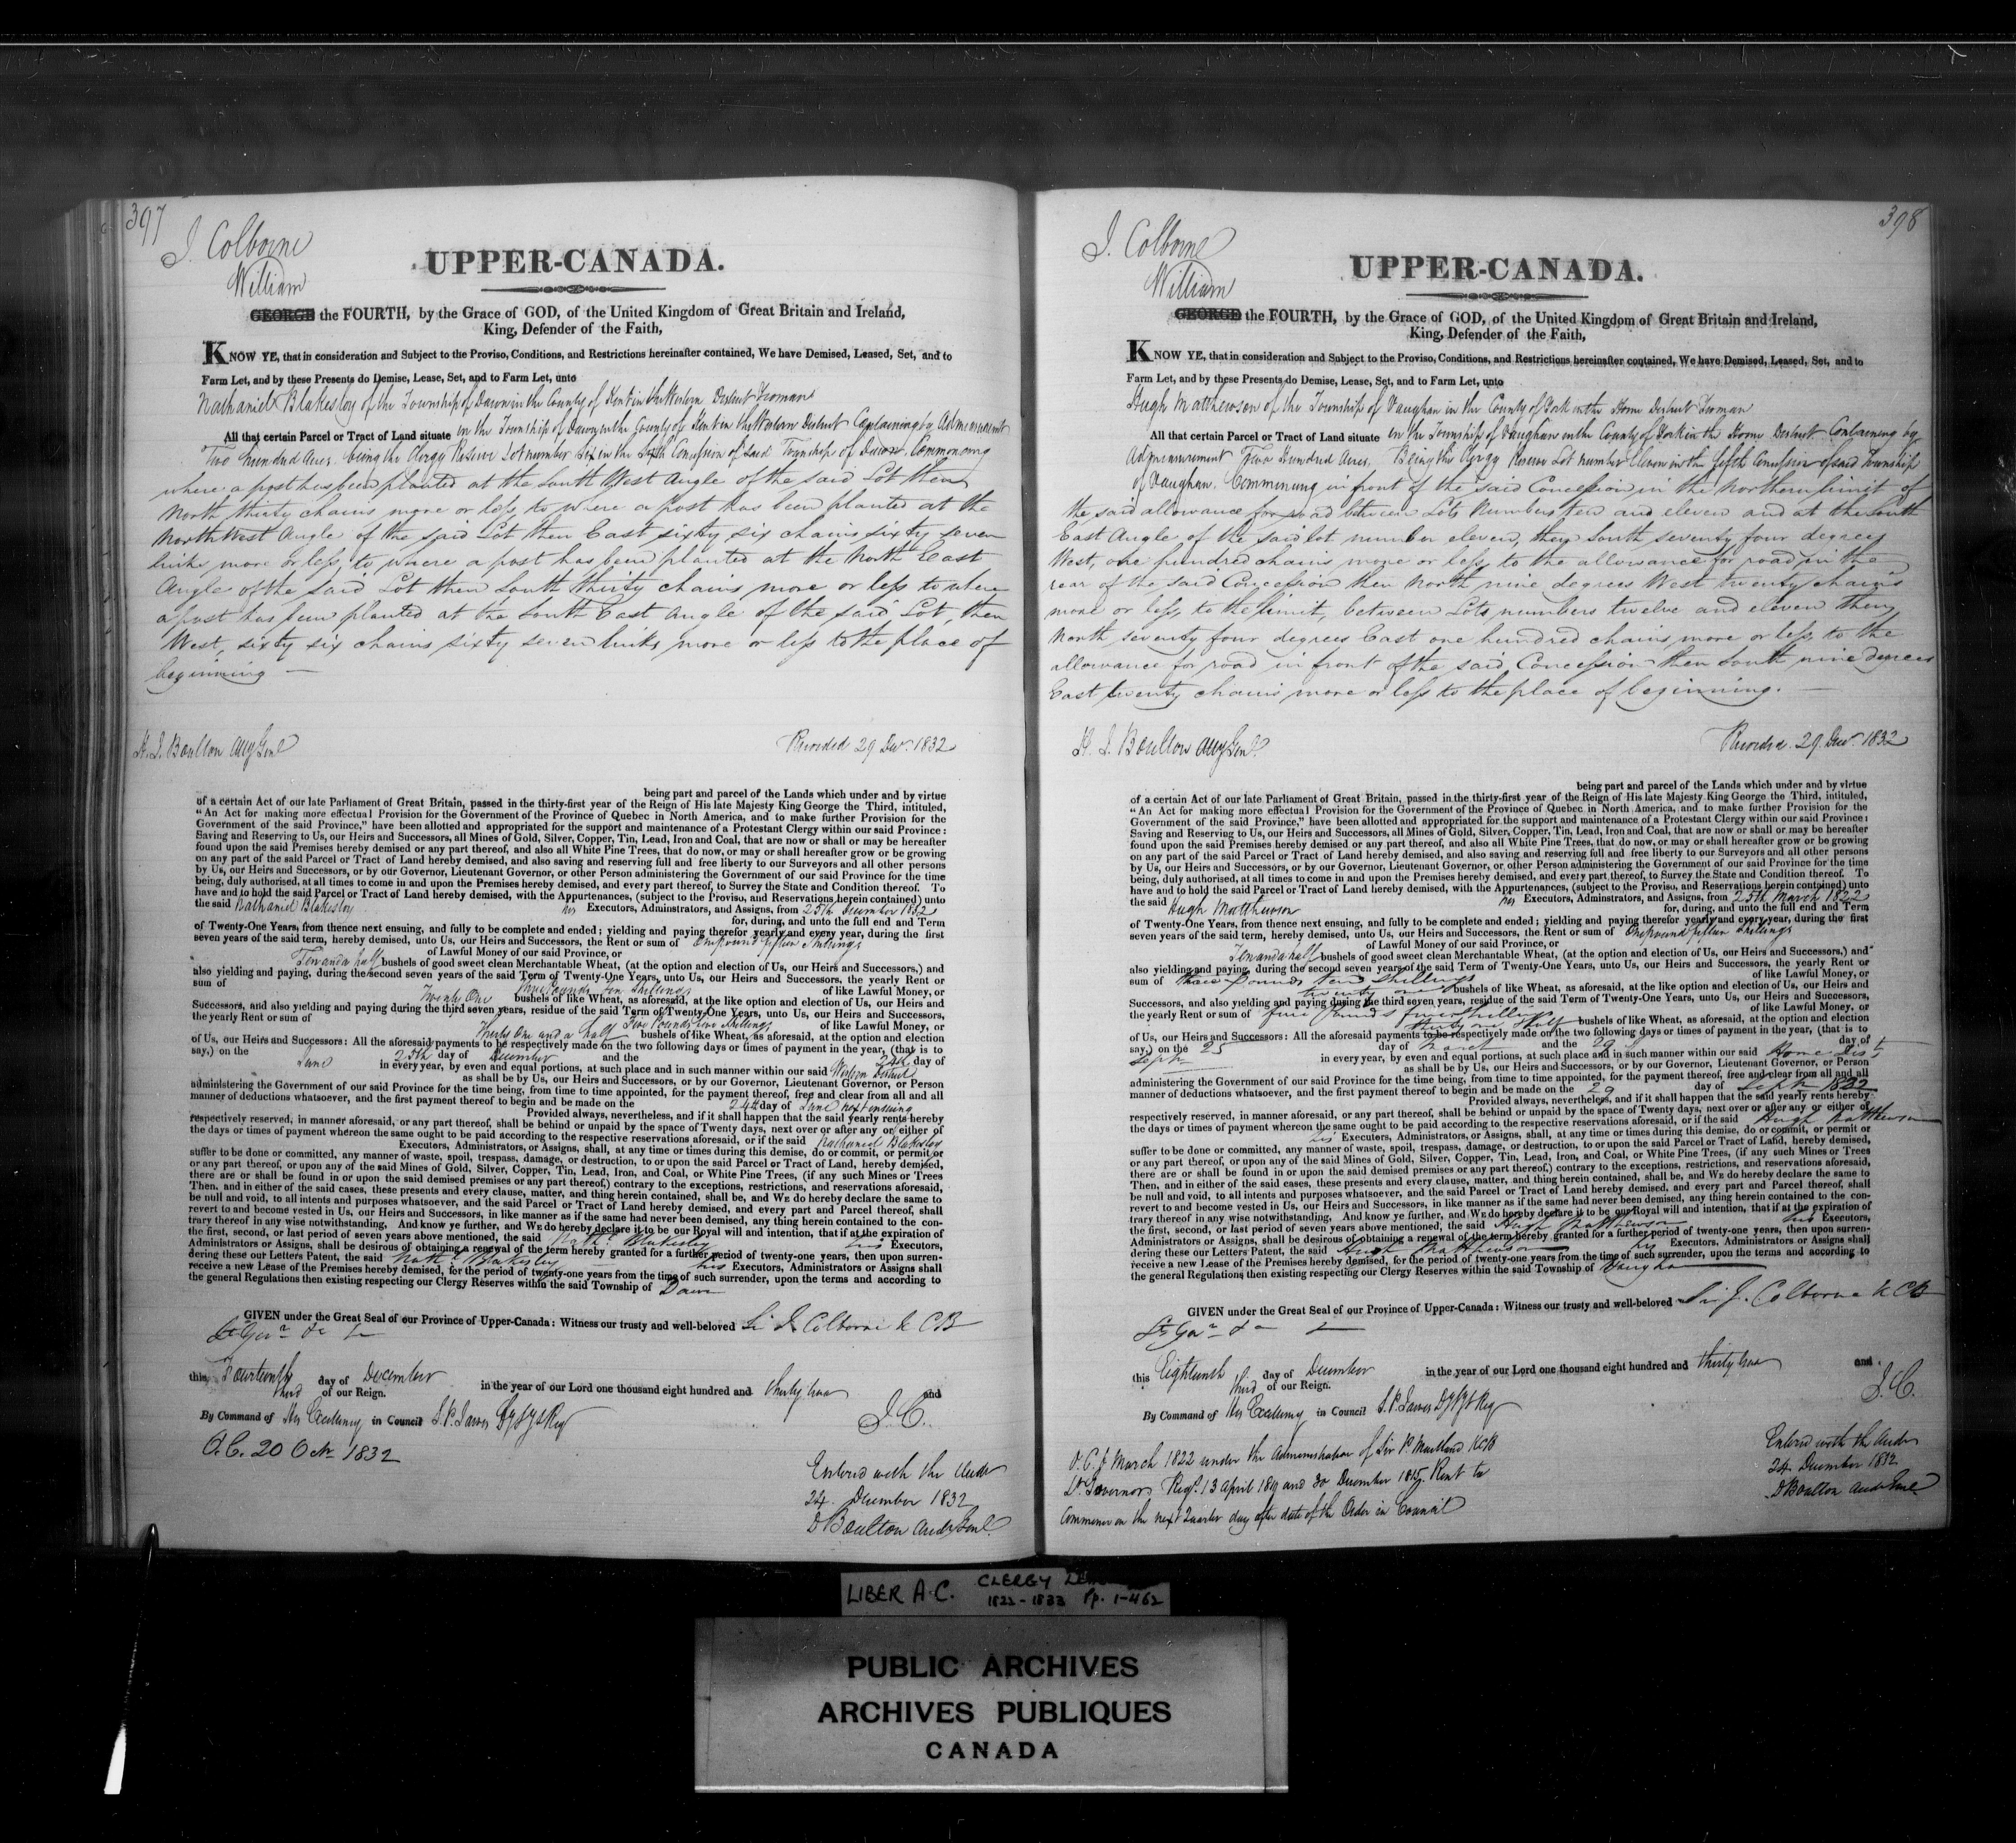 397
J. Colborne
William
UPPER-CANADA.
GEORGE the FOURTH, by the Grace of GOD, of the United Kingdom of Great Britain and Ireland,
King, Defender of the Faith,
KNOW YE, that in consideration and Subject to the Proviso, Conditions, and Restrictions hereinafter contained, We have Demised, Leased, Set, and to
Farm Let, and by these Presents do Demise, Lease, Set, and to Farm Let, unto
Nathaniel Blakesley of the Township of Dawn in the County of Kent in the Western District Yeoman
All that certain Parcel or Tract of Land situate in the Township of Dawn in the County of Kent in the Western District Containing by Admeasurement
Two hundred Acres being the Clergy Reserve Lot number Six in the Sixth Concession of Said Township of Dawn. Commencing
where a post has been planted at the South West Angle of the said Lot then
North thirty chains more or less to where a post has been planted at the
North West Angle of the said Lot then East sixty six chains sixty seven
links more or less, to where a post has been planted at the North East
Angle of the said Lot then South thirty chains more or less to where
a post has been planted at the South East Angle of the said Lot, then
West, sixty six chains sixty seven links more or less to the place of
beginning
H. J. Boulton Atty Genl
Recorded 29 Decr. 1832
being part and parcel of the Lands which under and by virtue
of a certain Act of our late Parliament of Great Britain, passed in the thirty-first year of the Reign of His late Majesty King George the Third, intituled,
"An Act for making more effectual Provision for the Government of the Province of Quebec in North America, and to make further Provision for the
Government of the said Province," have been allotted and appropriated for the support and maintenance of a Protestant Clergy within our said Province:
Saving and Reserving to Us, our Heirs and Successors, all Mines of Gold, Silver, Copper, Tin, Lead, Iron and Coal, that are now or shall or may be hereafter
found upon the said Premises hereby demised or any part thereof, and also all White Pine Trees, that do now, or may or shall hereafter grow or be growing
on any part of the said Parcel or Tract of Land hereby demised, and also saving and reserving full and free liberty to our Surveyors and all other persons
by Us, our Heirs and Successors, or by our Governor, Lieutenant Governor, or other Person administering the Government of our said Province for the time
being, duly authorised, at all times to come in and upon the Premises hereby demised, and every part thereof, to Survey the State and Condition thereof. To
have and to hold the said Parcel or Tract of Land hereby demised, with the Appurtenances, (subject to the Proviso, and Reservations herein contained) unto
the said Nathaniel Blakesley his Executors, Adminstrators, and Assigns, from 25th December 1832
for, during, and unto the full end and Term
of Twenty-One Years, from thence next ensuing, and fully to be complete and ended; yielding and paying therefor yearly and every year, during the first
seven years of the said term, hereby demised, unto Us, our Heirs and Successors, the Rent or sum of One pound fifteen Shillings
of Lawful Money of our said Province, or
Ten and a half bushels of good sweet clean Merchantable Wheat, (at the option and election of Us, our Heirs and Successors,) and
also yielding and paying, during the second seven years of the said Term of Twenty-One Years, unto Us, our Heirs and Successors, the yearly Rent or
sum of Three Pounds Ten Shillings of like Lawful Money, or
Twenty One bushels of like Wheat, as aforesaid, at the like option and election of Us, our Heirs and
Successors, and also yielding and paying during the third seven years, residue of the said Term of Twenty-One Years, unto Us, our Heirs and Successors,
the yearly Rent or sum of Five Pounds five Shillings of like Lawful Money, or
Thirty One and a half bushels of like Wheat, as aforesaid, at the option and election
of Us, our Heirs and Successors: All the aforesaid payments to be respectively made on the two following days or times of payment in the year, (that is to
say,) on the 25th day of December and the 24th day of
June in every year, by even and equal portions, at such place and in such manner within our said Western District
as shall be by Us, our Heirs and Successors, or by our Governor, Lieutenant Governor, or Person
administering the Government of our said Province for the time being, from time to time appointed, for the payment thereof, free and clear from all and all
manner of deductions whatsoever, and the first payment thereof to begin and be made on the 24th day of June next ensuing
Provided always, nevertheless, and if it shall happen that the said yearly rents hereby
respectively reserved, in manner aforesaid, or any part thereof, shall be behind or unpaid by the space of Twenty days, next over or after any or either of
the days or times of payment whereon the same ought to be paid according to the respective reservations aforesaid, or if the said Nathaniel Blakesley
Executors, Administrators, or Assigns, shall, at any time or times during this demise, do or commit, or permit or
suffer to be done or committed, any manner of waste, spoil, trespass, damage, or destruction, to or upon the said Parcel or Tract of Land, hereby demised,
or any part thereof, or upon any of the said Mines of Gold, Silver, Copper, Tin, Lead, Iron, and Coal, or White Pine Trees, (if any such Mines or Trees
there are or shall be found in or upon the said demised premises or any part thereof,) contrary to the exceptions, restrictions, and reservations aforesaid,
Then, and in either of the said cases, these presents and every clause, matter, and thing herein contained, shall be, and WE do hereby declare the same to
be null and void, to all intents and purposes whatsoever, and the said Parcel or Tract of Land hereby demised, and every part and Parcel thereof, shall
revert to and become vested in Us, our Heirs and Successors, in like manner as if the same had never been demised, any thing herein contained to the con-
trary thereof in any wise notwithstanding. And know ye further, and WE do hereby declare it to be our Royal will and intention, that if at the expiration of
the first, second, or last period of seven years above mentioned, the said Nathl. Blakesley his Executors,
Administrators or Assigns, shall be desirous of obtaining a renewal of the term hereby granted for a further period of twenty-one years, then upon surren-
dering these our Letters Patent, the said Nath. Blakesley his Executors, Administrators or Assigns shall
receive a new Lease of the Premises hereby demised, for the period of twenty-one years from the time of such surrender, upon the terms and according to
the general Regulations then existing respecting our Clergy Reserves within the said Township of Dawn
GIVEN under the Great Seal of our Province of Upper-Canada: Witness our trusty and well-beloved Sir J. Colborne K CB
Lt Govr &c
this Fourteenth day of December in the year of our Lord one thousand eight hundred and thirty two and
third of our Reign.
J.C.
By Command of His Excellency in Council S. P. Jarvis
O.C. 20 Octr 1832
Entered with the Audr
24. December 1832
D Boulton Audr Genl.
398
J. Colborne
William
UPPER-CANADA.
GEORGE the FOURTH, by the Grace of GOD, of the United Kingdom of Great Britain and Ireland,
King, Defender of the Faith,
KNOW YE, that in consideration and Subject to the Proviso, Conditions, and Restrictions hereinafter contained, We have Demised, Leased, Set, and to
Farm Let, and by these Presents do Demise, Lease, Set, and to Farm Let, unto
Hugh Matthewson of the Township of Vaughan in the County of York in the Home District Yeoman
All that certain Parcel or Tract of Land situate in the Township of Vaughan in the County of York in the Home District Containing by
Admeasurement Two Hundred Acres, Being the Clergy Reserve Lot number Eleven in the fifth Concession of said Township
of Vaughan. Commencing in front of the said Concession in the Northern limit of
the said allowance for road between Lots numbers ten and eleven and at the South
East Angle of the said lot number eleven, then South seventy four degrees
West, one hundred chains more or less to the allowance for road in the
rear of the said Concession then North nine degrees West twenty chains
more or less, to the limit, between Lots numbers twelve and eleven then
North seventy four degrees East one hundred chains, more or less, to the
allowance for road in front of the said Concession then South nine degrees
East twenty chains more or less to the place of beginning.
H. J. Boulton Atty Genl.
Recorded 29 Decr. 1832
being part and parcel of the Lands which under and by virtue
of a certain Act of our late Parliament of Great Britain, passed in the thirty-first year of the Reign of His late Majesty King George the Third, intituled,
"An Act for making more effectual Provision for the Government of the Province of Quebec in North America, and to make further Provision for the
Government of the said Province," have been allotted and appropriated for the support and maintenance of a Protestant Clergy within our said Province:
Saving and Reserving to Us, our Heirs and Successors, all Mines of Gold, Silver, Copper, Tin, Lead, Iron and Coal, that are now or shall or may be hereafter
found upon the said Premises hereby demised or any part thereof, and also all White Pine Trees, that do now, or may or shall hereafter grow or be growing
on any part of the said Parcel or Tract of Land hereby demised, and also saving and reserving full and free liberty to our Surveyors and all other persons
by Us, our Heirs and Successors, or by our Governor, Lieutenant Governor, or other Person administering the Government of our said Province for the time
being, duly authorised, at all times to come in and upon the Premises hereby demised, and every part thereof, to Survey the State and Condition thereof. To
have and to hold the said Parcel or Tract of Land hereby demised, with the Appurtenances, (subject to the Proviso, and Reservations herein contained) unto
the said Hugh Matthewson his Executors, Adminstrators, and Assigns, from 25th March 1822
for, during, and unto the full end and Term
of Twenty-One Years, from thence next ensuing, and fully to be complete and ended; yielding and paying therefor yearly and every year, during the first
seven years of the said term, hereby demised, unto Us, our Heirs and Successors, the Rent or sum of One pound fifteen Shillings
of Lawful Money of our said Province, or
Ten and a half bushels of good sweet clean Merchantable Wheat, (at the option and election of Us, our Heirs and Successors,) and
also yielding and paying, during the second seven years of the said Term of Twenty-One Years, unto Us, our Heirs and Successors, the yearly Rent or
sum of three Pounds ten Shillings of like Lawful Money, or
twenty one bushels of like Wheat, as aforesaid, at the like option and election of Us, our Heirs and
Successors, and also yielding and paying during the third seven years, residue of the said Term of Twenty-One Years, unto Us, our Heirs and Successors,
the yearly Rent or sum of five Pounds five shillings of like Lawful Money, or
thirty one half bushels of like Wheat, as aforesaid, at the option and election
of Us, our Heirs and Successors: All the aforesaid payments to be respectively made on the two following days or times of payment in the year, (that is to
say,) on the 25 day of March and the 29 day of
Septr in every year, by even and equal portions, at such place and in such manner within our said Home Dist
as shall be by Us, our Heirs and Successors, or by our Governor, Lieutenant Governor, or Person
administering the Government of our said Province for the time being, from time to time appointed, for the payment thereof, free and clear from all and all
manner of deductions whatsoever, and the first payment thereof to begin and be made on the 29 day of Septr 1822
Provided always, nevertheless, and if it shall happen that the said yearly rents hereby
respectively reserved, in manner aforesaid, or any part thereof, shall be behind or unpaid by the space of Twenty days, next over or after any or either of
the days or times of payment whereon the same ought to be paid according to the respective reservations aforesaid, or if the said Hugh Matthewson
his Executors, Administrators, or Assigns, shall, at any time or times during this demise, do or commit, or permit or
suffer to be done or committed, any manner of waste, spoil, trespass, damage, or destruction, to or upon the said Parcel or Tract of Land, hereby demised,
or any part thereof, or upon any of the said Mines of Gold, Silver, Copper, Tin, Lead, Iron, and Coal, or White Pine Trees, (if any such Mines or Trees
there are or shall be found in or upon the said demised premises or any part thereof,) contrary to the exceptions, restrictions, and reservations aforesaid,
Then, and in either of the said cases, these presents and every clause, matter, and thing herein contained, shall be, and WE do hereby declare the same to
be null and void, to all intents and purposes whatsoever, and the said Parcel or Tract of Land hereby demised, and every part and Parcel thereof, shall
revert to and become vested in Us, our Heirs and Successors, in like manner as if the same had never been demised, any thing herein contained to the con-
trary thereof in any wise notwithstanding. And know ye further, and WE do hereby declare it to be our Royal will and intention, that if at the expiration of
the first, second, or last period of seven years above mentioned, the said Hugh Matthewson his Executors,
Administrators or Assigns, shall be desirous of obtaining a renewal of the term hereby granted for a further period of twenty-one years, then upon surren-
dering these our Letters Patent, the said Hugh Matthewson his Executors, Administrators or Assigns shall
receive a new Lease of the Premises hereby demised, for the period of twenty-one years from the time of such surrender, upon the terms and according to
the general Regulations then existing respecting our Clergy Reserves within the said Township of Vaughan
GIVEN under the Great Seal of our Province of Upper-Canada: Witness our trusty and well-beloved Sir J. Colborne K CB
Lt Govr &c
this Eighteenth day of December in the year of our Lord one thousand eight hundred and thirty two and
third of our Reign.
J.C.
By Command of His Excellency in Council S. P. Jarvis
O.C. March 1822 under the Administration of Sir P. Maitland KCB
Lt. Governor. Regs. 13 April 1819 and 30 December 1815. Rent to
Commence on the next Quarter day after date of the Order in Council
Entered with the Audr
24 December 1832
D Boulton Audr Genl
LIBER A.C. CLERGY
1822-1833 Pp. 1-462
PUBLIC ARCHIVES
ARCHIVES PUBLIQUES
CANADA